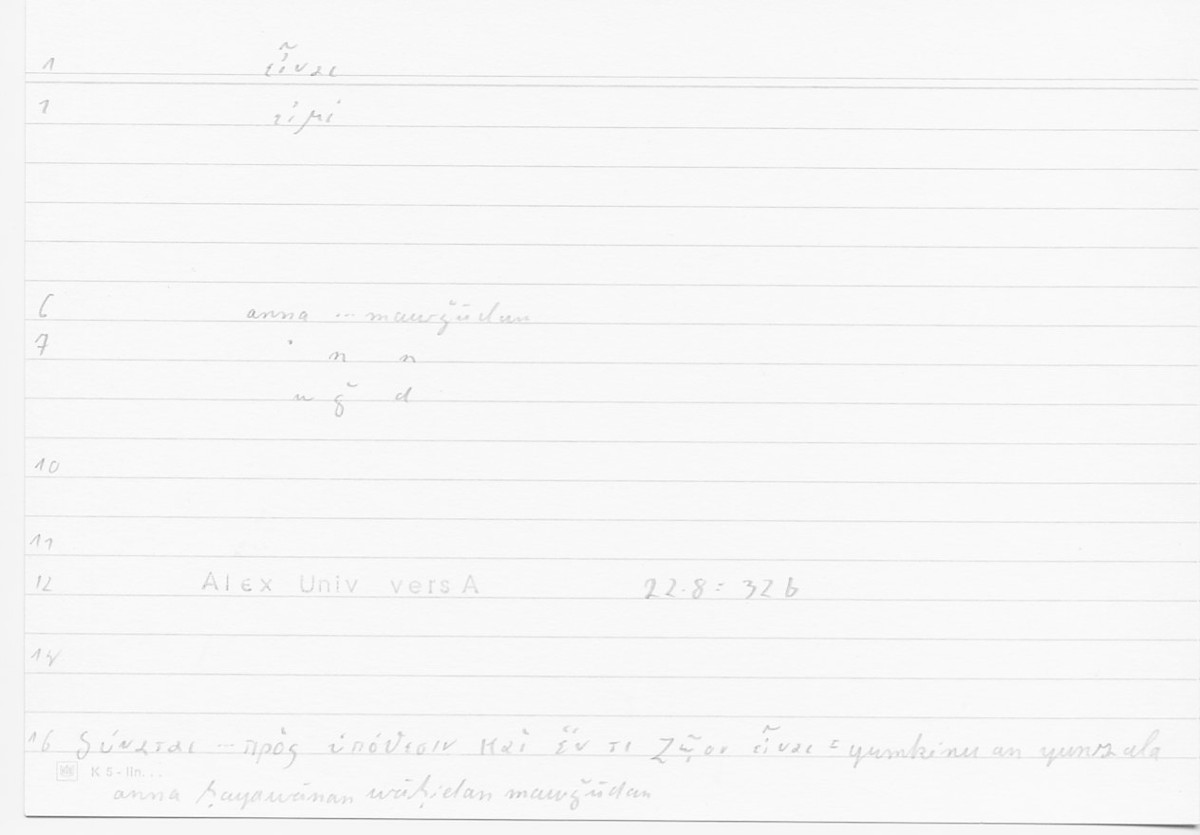 1 εἶναι
1 εἰμί
6 anna ... mawǧūdan
7 ʾ n n
w ǧ d
10
11
12 Alex Univ vers A 22.8 = 32 b
14
16 δύναται ... πρὸς ὑπόθεσιν καὶ ἕν τι ζῷον εἶναι = yumkinu an yunzala
K 5 - lin...
anna ḥayawānan wāḥidan mawǧūdan